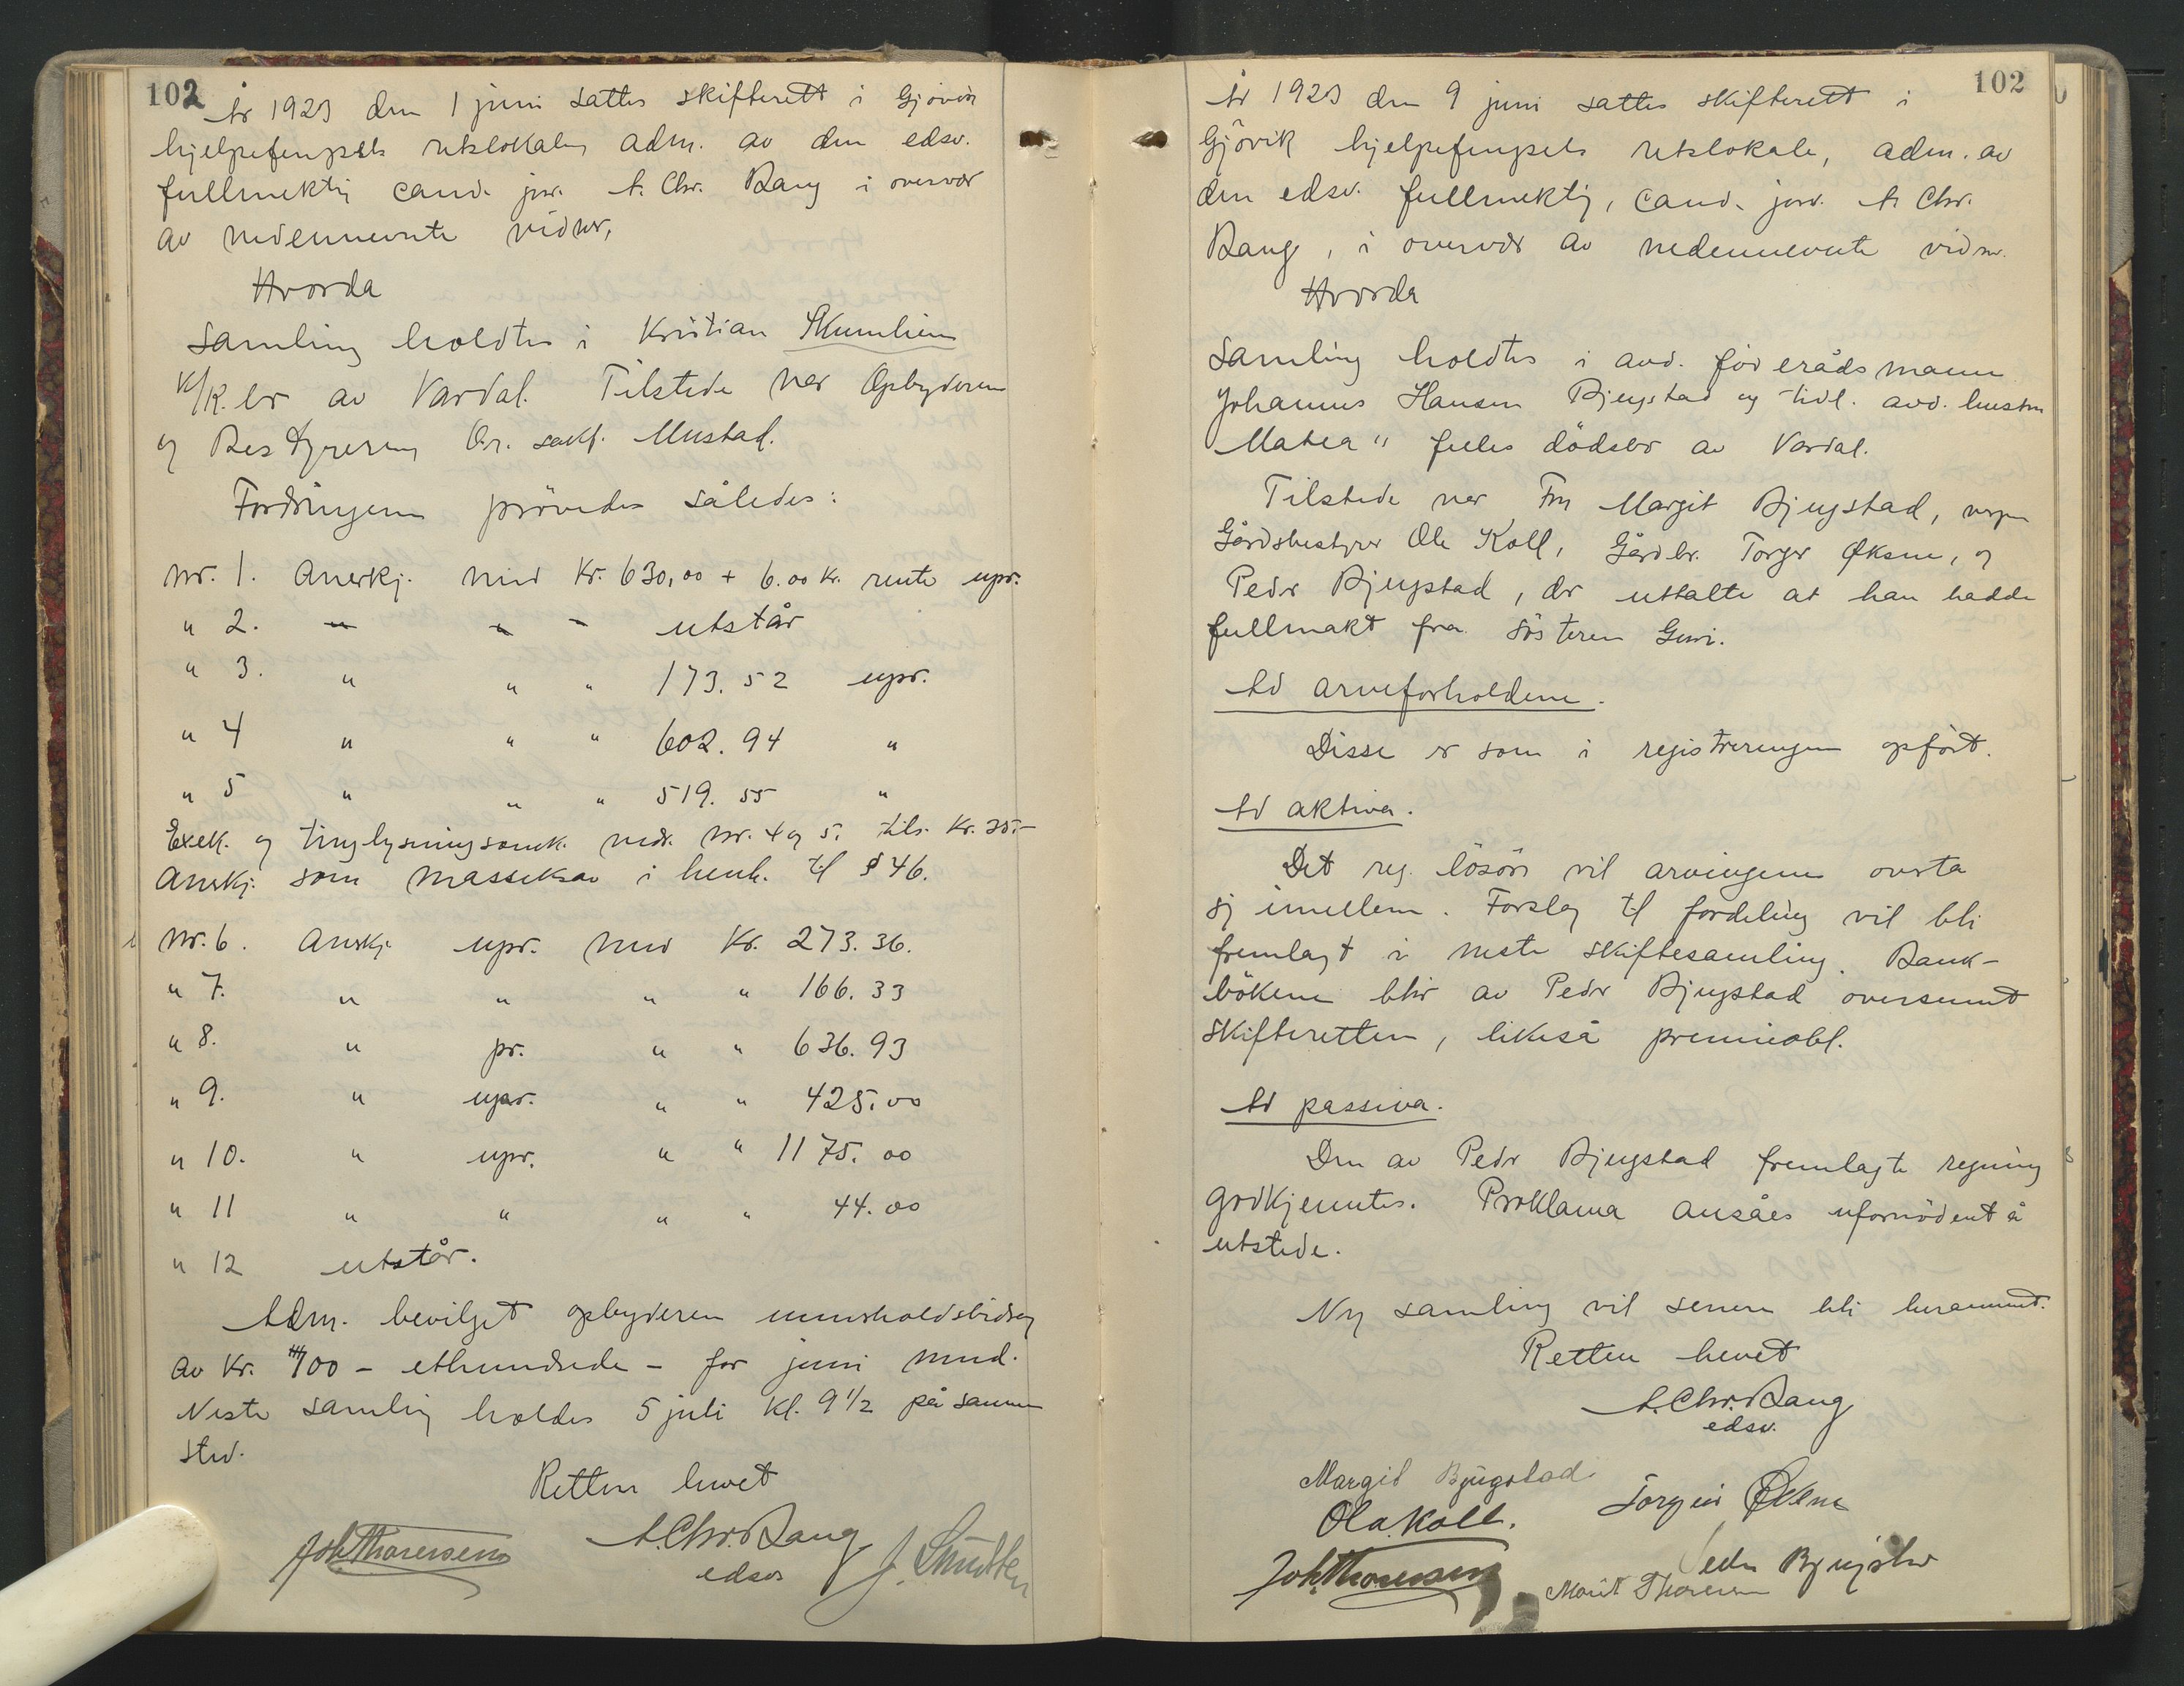 102
År 1923 den 1 juni sattes skifterett i Gjøvik
hjelpefengsels retslokale, adm. av den edsv.
fullmektig cand. jur. A. Chr. Bang i overvær
av nedennevnte vidner,
Hvorda
Samling holdtes i Kristian Skumlien
K/K.bo av Vardal. Tilstede var Opbyderen
og Bestyreren Or. sakf. Mustad.
Fordringene prövedes således:
Nr. 1. Anerkj. med Kr. 630,00 + 6.00 Kr. rente upr.
" 2. " " " utstår
" 3. " " " 173.52 upr.
" 4 " " " 602.94 "
" 5 " " " 519.55 "
Exek. og tinglysningsomk. vedr. Nr. 4 og 5. tils. Kr. 35.-
Anerkj. som massekrav i henh. til § 46.
Nr. 6. Anerkj. upr. med Kr. 273.36.
" 7. " " " " 166.33
" 8. " pr. " " 636.93
" 9. " upr. " " 425.00
" 10. " upr. " " 1175.00
" 11 " " " " 44.00
" 12 utstår.
Adm. bevilget opbyderen underholdsbidrag
av Kr. 100 - ethundrede - for juni mnd.
Neste samling holdes 5 juli Kl. 9 1/2 på samme
sted.
Retten hevet
Joh Thoresen A. Chr. Bang
edsv
102
År 1923 den 9 juni sattes skifterett i
Gjövik hjelpefengsels retslokale, adm. av
den edsv. fullmektig, cand. jur. A. Chr.
Bang, i overvær av nedennevnte vidner.
Hvorda
Samling holdtes i avd. föderådsmann
Johannes Hansen Bjugstad og tidl. avd. hustru
Matea " felles dödsbo av Vardal.
Tilstede var Frk Margit Bjugstad, verge
Gårdsbestyrer Ole Koll, Gårdbr. Torger Øksne, og
Peder Bjugstad, der uttalte at han hadde
fullmakt fra sösteren Guri.
Ad arveforholdene.
Disse er som i registreringen opfört.
Ad aktiva.
Det reg. lösöre vil arvingene overta
sig imellem. Forslag til fordeling vil bli
fremlagt i neste skiftesamling. Bank-
bökene blir av Peder Bjugstad oversendt
skifteretten, likeså premieobl.
Ad passiva.
Den av Peder Bjugstad fremlagte regning
godkjentes. Proklama ansåes ufornödent å
utstede.
Ny samling vil senere bli berammet.
Retten hevet
A. Chr. Bang
edsv.
Margit Bjugstad
Ola Koll. Torger Øksne
Joh. Thoresen Peder Bjugstad
Marit Thoresen